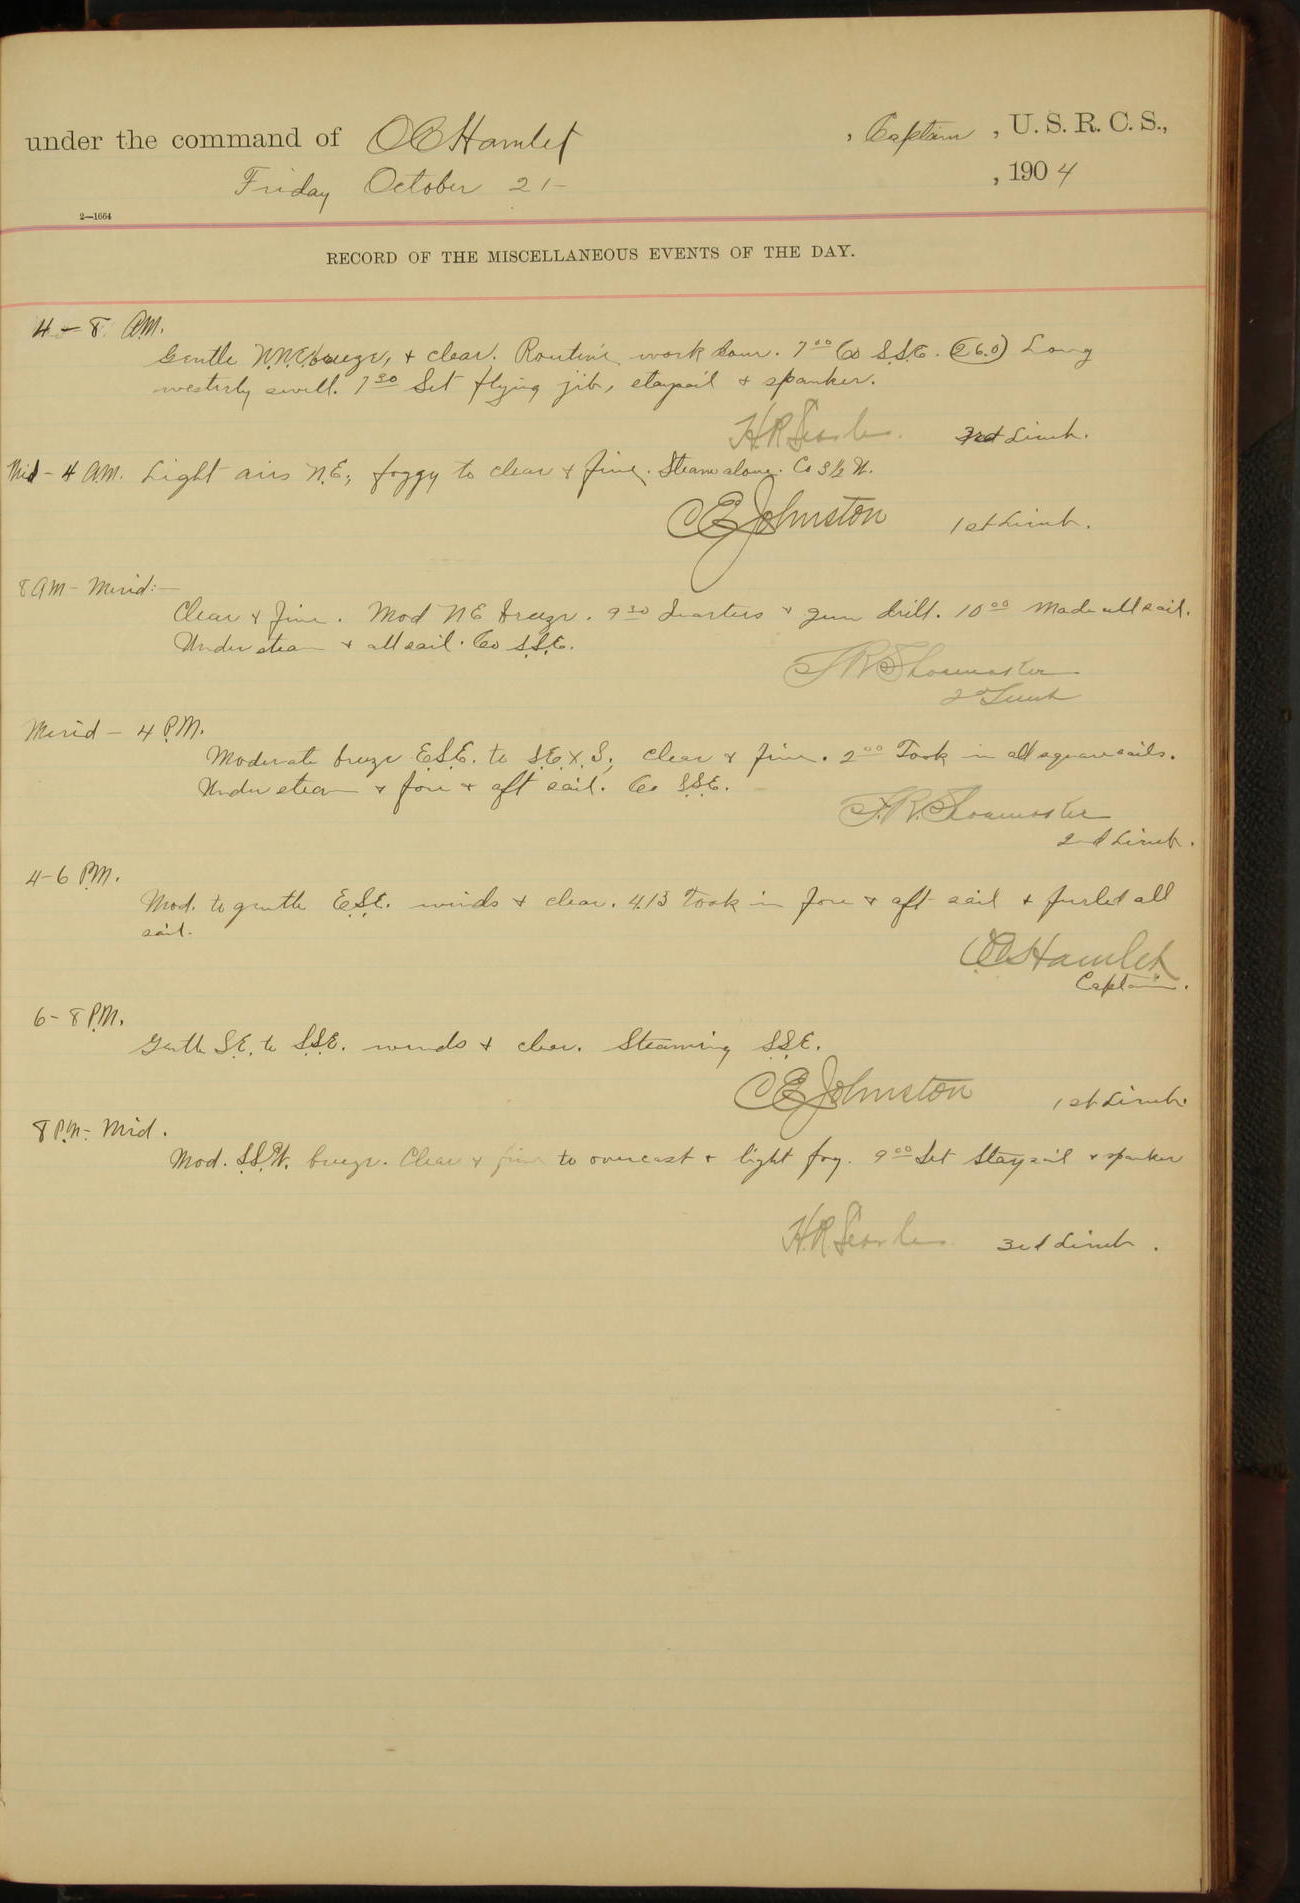 under the command of O C Hamlet , Captain , U. S. R. C. S.,
Friday October 21— , 1904
2—1664
RECORD OF THE MISCELLANEOUS EVENTS OF THE DAY.
4 – 8 A.M.
Gentle N.N.E. breeze, & clear. Routine work done. 7 00 Co S.S.E. (26.0) Long
westerly swell. 7 30 Set flying jib, staysail & spanker.
H R Searles. 3rd Lieut.
Mid – 4 A.M. Light airs N.E., foggy to clear & fine. Steam alone. Co S ½ W.
C E Johnston 1st Lieut.
8 AM – Merid:—
Clear & fine. Mod NE breeze. 9 30 Quarters & gun drill. 10 00 Made all sail.
Under steam & all sail. Co S.S.E.
F R Shoemaker
2d Lieut
Merid – 4 P.M.
Moderate breeze E.S.E. to S.E. x S., clear & fine. 2 00 Took in all square sails.
Under steam & fore & aft sail. Co S.S.E.
F. R. Shoemaker
2d Lieut.
4–6 P.M.
Mod. to gentle E.S.E. winds & clear. 4.13 Took in fore & aft sail & furled all
sail.
O C Hamlet
Captain.
6–8 P.M.
Gentle S.E. to S.S.E. winds & clear. Steaming S.S.E.
C E Johnston 1st Lieut.
8 P.M.– Mid.
Mod. S.S.W. breeze. Clear & fine to overcast & light fog. 9 00 Set Staysail & spanker
H. R Searles 3rd Lieut.